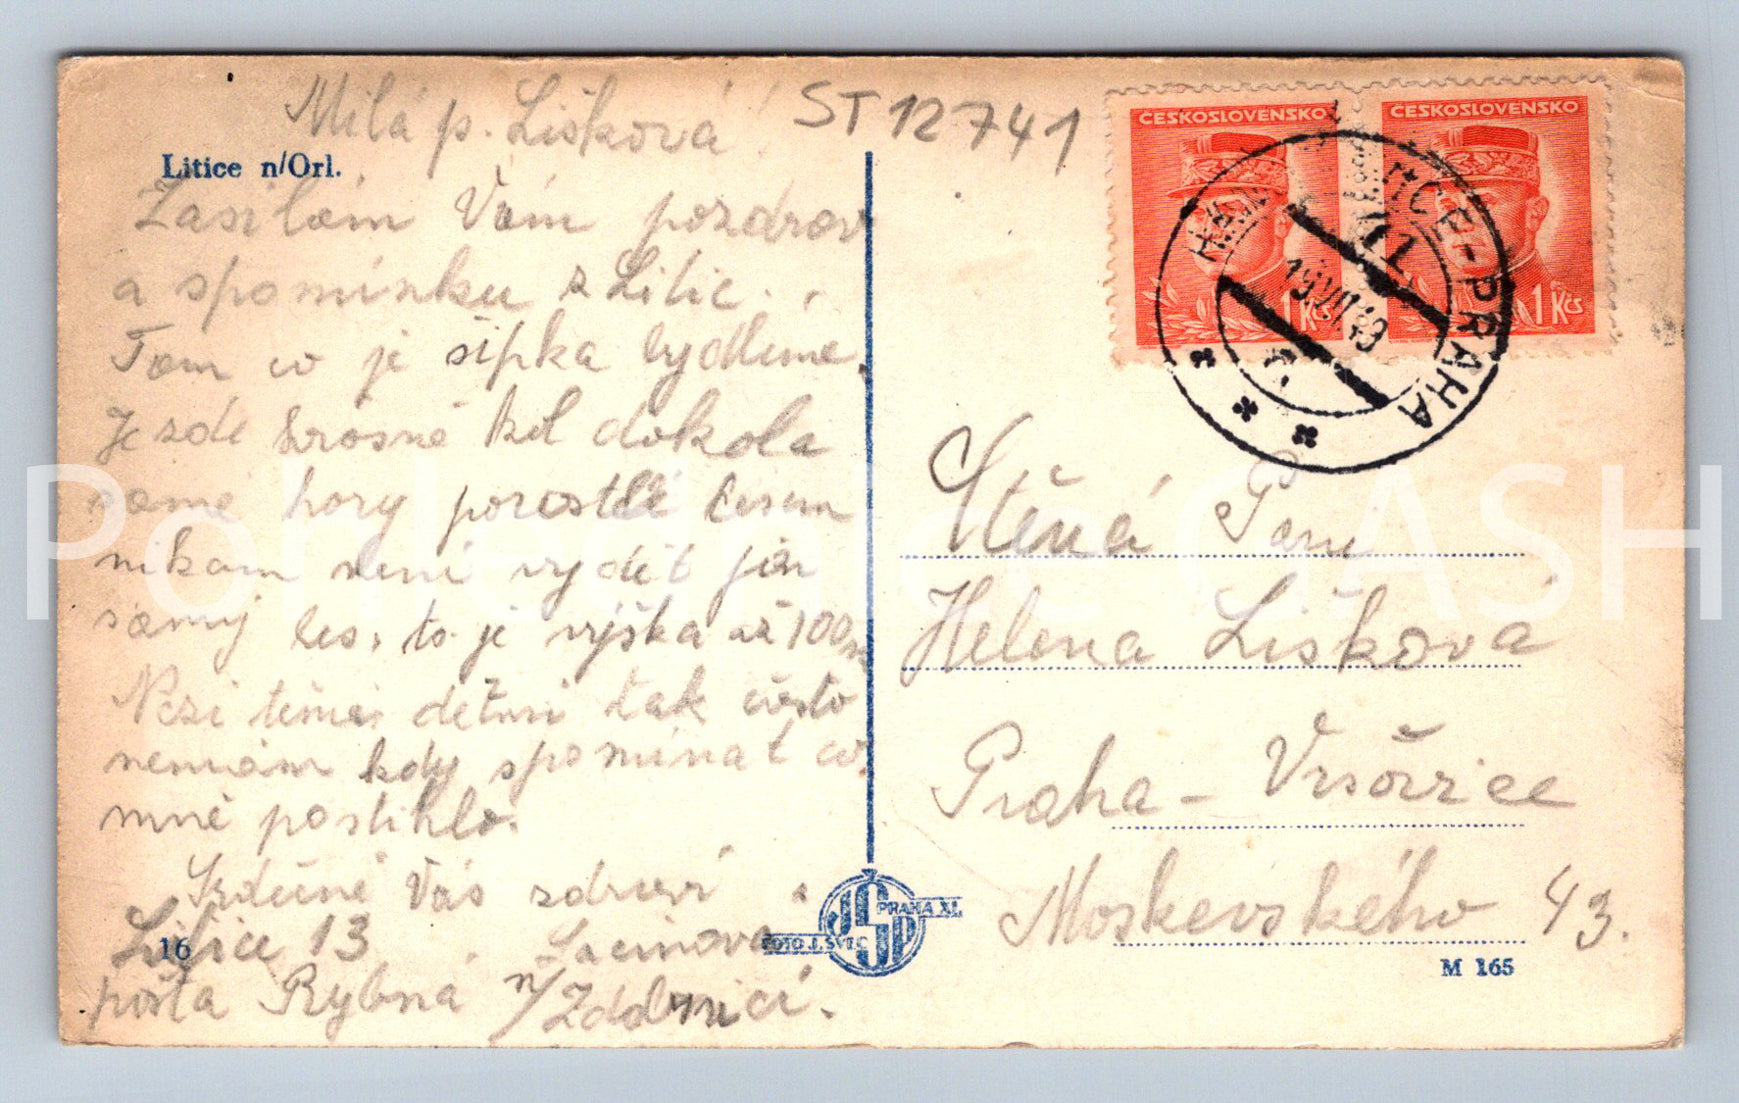 Milá p. Lišková!
ST 12741
Litice n/Orl.
Zasilám Vám pozdrav
a spomínku z Litic.
Tam co je šipka bydlíme.
Je zde krásně kol dokola
samé hory porostlé lesem
nikam není vydět jen
samý les, to je výška až 100 m
Mezi těmi dětmi tak často
nemám kdy spomínat co
mně postihlo.
Srdečně Vás zdraví
Litice 13
pošta Rybná n/Zdobnicí.
16
ČESKOSLOVENSKO
1 Kčs
ČESKOSLOVENSKO
1 Kčs
PRAHA
Ctěná Paní
Helena Lišková
Praha - Vršovice
Moskevského 43.
JŠP
PRAHA XI.
FOTO J. ŠVEC
M 165
Pohlednice GASH